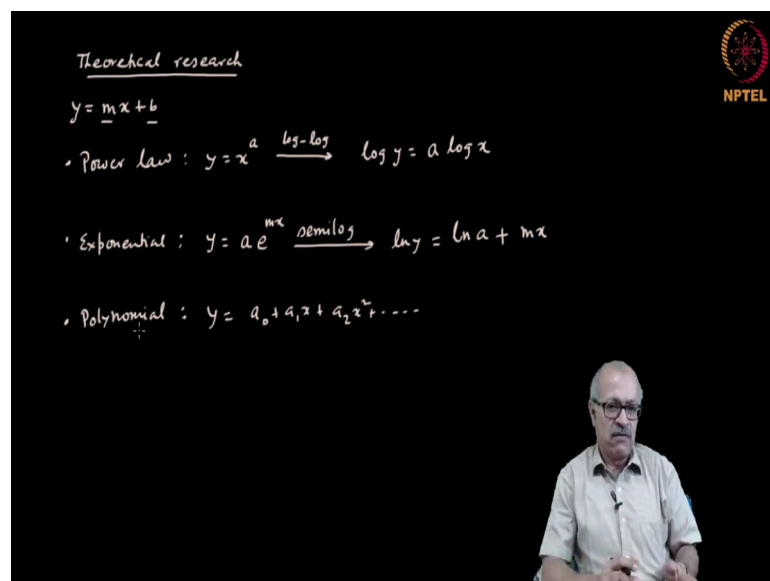 Theoretical research
NPTEL
y = mx + b
• Power law : y = x^a log-log → log y = a log x
• Exponential : y = a e^mx semilog → ln y = ln a + mx
• Polynomial : y = a₀ + a₁x + a₂x² + ....